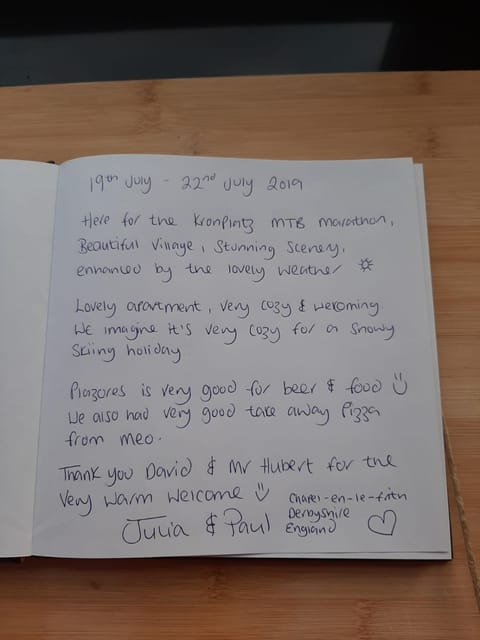 19th July - 22nd July 2019
Here for the Kronplatz MTB marathon,
Beautiful Village, Stunning Scenery,
enhanced by the lovely weather
Lovely apartment, very cozy & welcoming
We imagine it's very cozy for a snowy
Skiing holiday
Plazores is very good for beer & food
We also had very good take away Pizza
from Meo.
Thank you David & Mr Hubert for the
Very warm welcome
Chapel-en-le-frith
Derbyshire
England
Julia & Paul